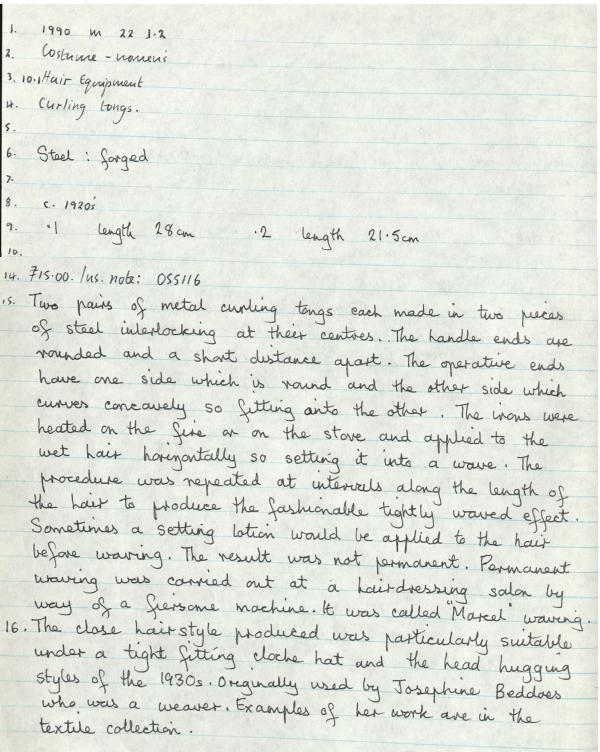 1. 1990 m 22 J.2
2. Costume - women's
3. 10.1 Hair Equipment
4. Curling tongs.
5.
6. Steel : forged
7.
8. c. 1920's
9. .1 length 28cm .2 length 21.5cm
10.
14. £15.00. Ins. note: OSS116
15. Two pairs of metal curling tongs each made in two pieces
of steel interlocking at their centres. The handle ends are
rounded and a short distance apart. The operative ends
have one side which is round and the other side which
curves concavely so fitting onto the other. The irons were
heated on the fire or on the stove and applied to the
wet hair horizontally so setting it into a wave. The
procedure was repeated at intervals along the length of
the hair to produce the fashionable tightly waved effect.
Sometimes a setting lotion would be applied to the hair
before waving. The result was not permanent. Permanent
waving was carried out at a hairdressing salon by
way of a fiersome machine. It was called "Marcel" waving.
16. The close hairstyle produced was particularly suitable
under a tight fitting cloche hat and the head hugging
styles of the 1930s. Originally used by Josephine Beddoes
who was a weaver. Examples of her work are in the
textile collection.